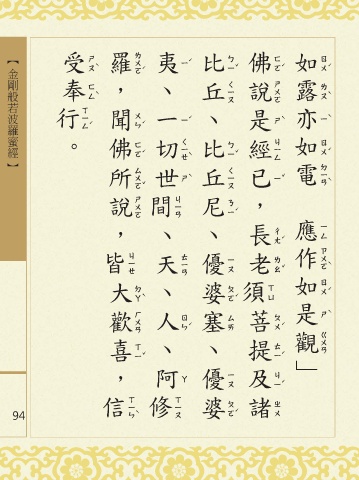 如露亦如電　應作如是觀」
佛說是經已，長老須菩提及諸
比丘、比丘尼、優婆塞、優婆
夷、一切世間、天、人、阿修
羅，聞佛所說，皆大歡喜，信
受奉行。
【金剛般若波羅蜜經】
94